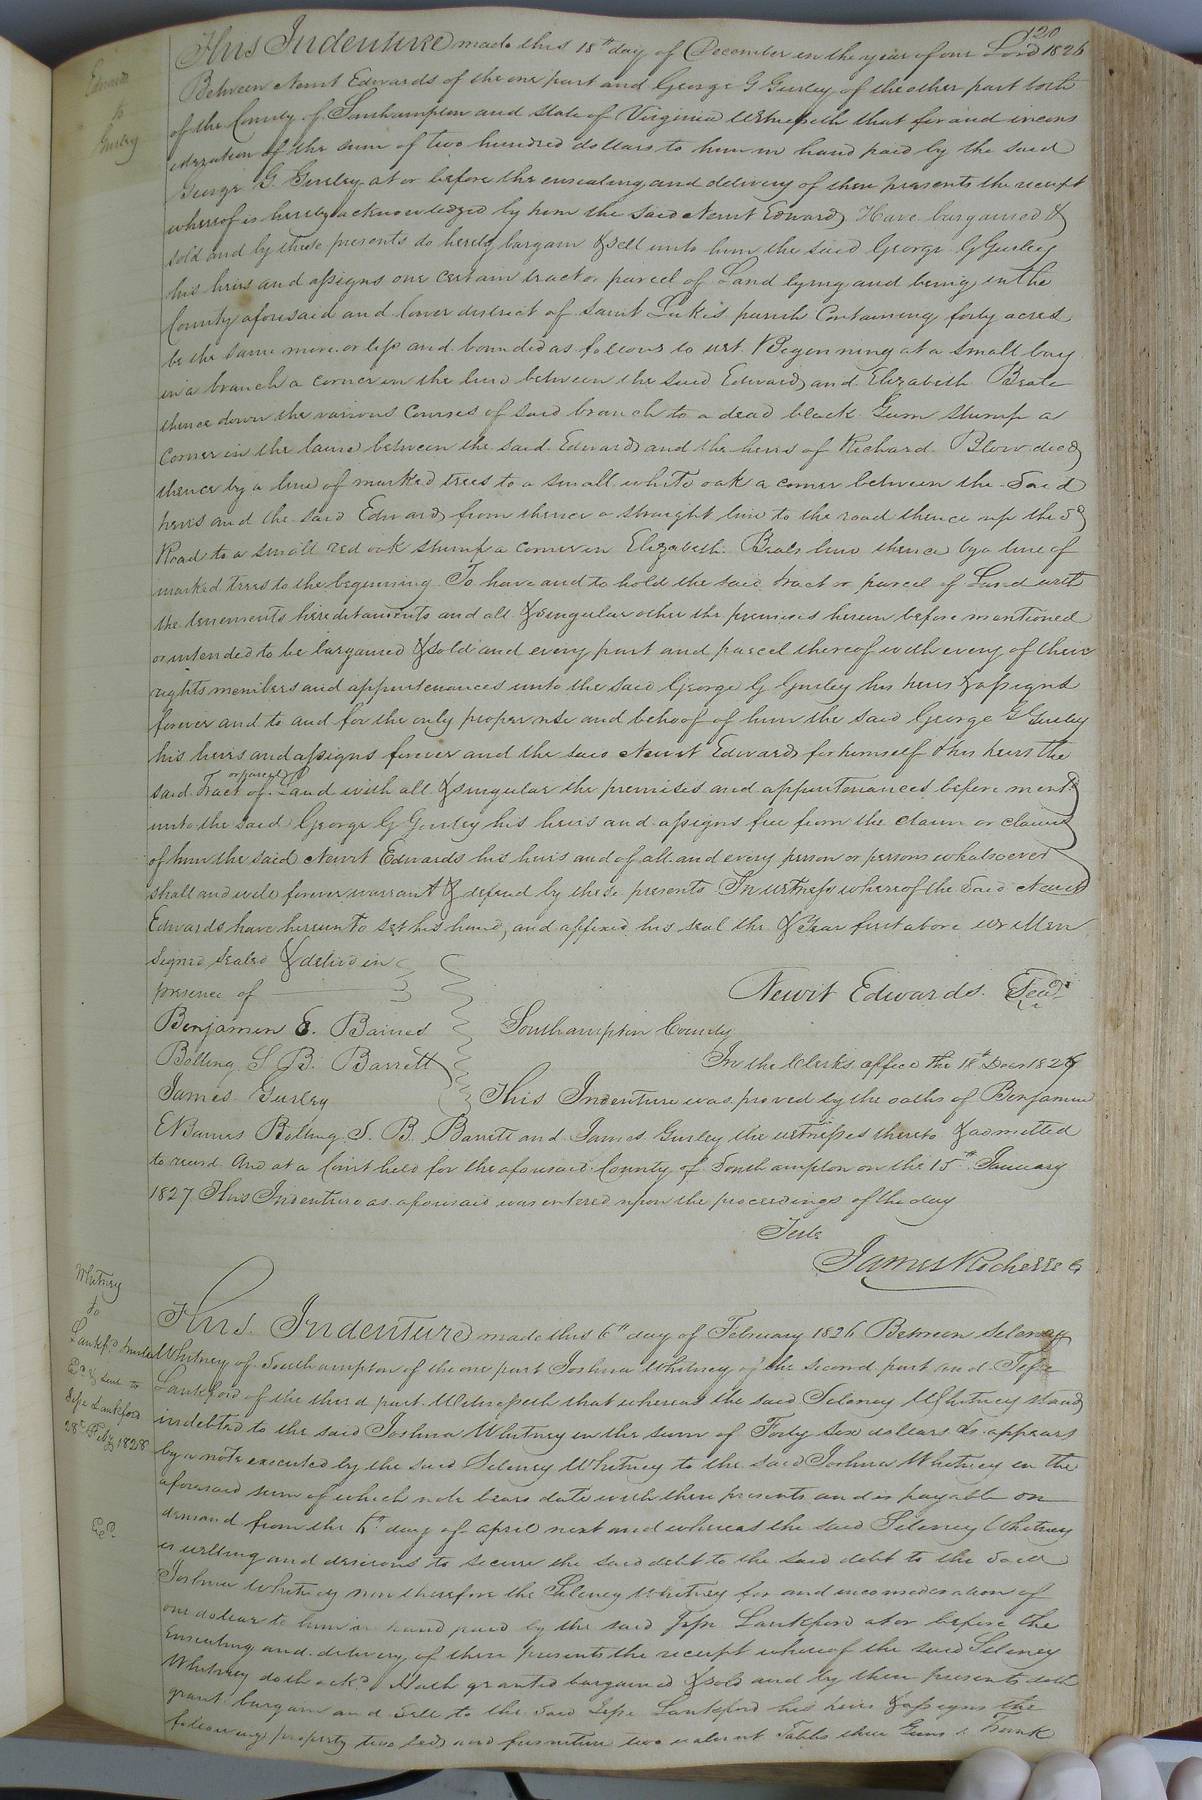 120
Edwards
to
Gurley
This Indenture made this 18th day of December in the year of our Lord 1826
Between Newit Edwards of the one part and George G Gurley of the other part both
of the County of Southampton and State of Virginia Witnesseth that for and in cons
ideration of the sum of two hundred dollars to him in hand paid by the said
George G. Gurley at or before the ensealing and delivery of these presents the receipt
whereof is hereby acknowledged by him the said Newit Edwards Have bargained &
sold and by these presents do hereby bargain & sell unto him the said George G Gurley
his heirs and assigns one certain tract or parcel of Land lying and being in the
County aforesaid and lower district of Saint Luke's parish Containing forty acres
be the same more or less and bounded as follows to wit. Beginning at a small bay
in a branch a corner in the line between the said Edwards and Elizabeth Beale
thence down the various Courses of said branch to a dead black Gum stump a
corner in the line between the said Edwards and the heirs of Richard Blow decd
thence by a line of marked trees to a small white oak a corner between the Said
heirs and the said Edwards from thence a straight line to the road thence up the sd
Road to a small red oak stump a corner in Elizabeth Beals line thence by a line of
marked trees to the beginning To have and to hold the said tract or parcel of Land with
the tenements hereditaments and all & singular other the premises herein before mentioned
or intended to be bargained & sold and every part and parcel thereof with every of their
rights members and appurtenances unto the said George G Gurley his heirs & assigns
forever and to and for the only proper use and behoof of him the said George G Gurley
his heirs and assigns forever and the said Newit Edwards for himself & his heirs the
said Tract or parcel of Land with all & singular the premises and appurtenances before mentd
unto the said George G Gurley his heirs and assigns free from the claim or claims
of him the said Newit Edwards his heirs and of all and every person or persons whatsoever
shall and will forever warrant & defend by these presents In witness whereof the Said Newit
Edwards have hereunto set his hand, and affixed his seal the & Year first above written
Signed Sealed & delivd in
presence of
Newit Edwards. Seal
Benjamin E. Baines
Southampton County
Bolling S B. Barrett
In the Clerks office the 18th Decr 1826
James Gurley
This Indenture was proved by the oaths of Benjamin
E Barnes Bolling S. B. Barrett and James Gurley the witnesses thereto & admitted
to record. And at a Court held for the aforesaid County of Southampton on the 15th January
1827 This Indenture as aforesaid was entered upon the proceedings of the day
Teste
James Rochelle C
Whitney
to
Lankfd
Exd & sent to
Jesse Lankford
28th Feby 1828
Exd.
This Indenture made this 6th day of February 1826 Between Seleney
Whitney of Southampton of the one part Joshua Whitney of the second part and Jesse
Lankford of the third part. Witnesseth that whereas the said Seleney Whitney stands
indebted to the said Joshua Whitney in the sum of Forty Six dollars As appears
by a note executed by the said Seleney Whitney to the said Joshua Whitney in the
aforesaid sum of which note bears date with these presents and is payable on
demand from the 6th day of April next and whereas the said Seleney Whitney
is willing and desirous to secure the said debt to the said debt to the Said
Joshua Whitney now therefore the Seleney Whitney for and inconsideration of
one dollar to him in hand paid by the said Jesse Lankford at or before the
Ensealing and delivery of these presents the receipt whereof the said Seleney
Whitney doth ackd. Hath granted bargained & sold and by these presents doth
grant bargain and Sell to the Said Jesse Lankford his heirs & assigns the
following property two beds and furniture two walnut Tables three Guns 1 Trunk